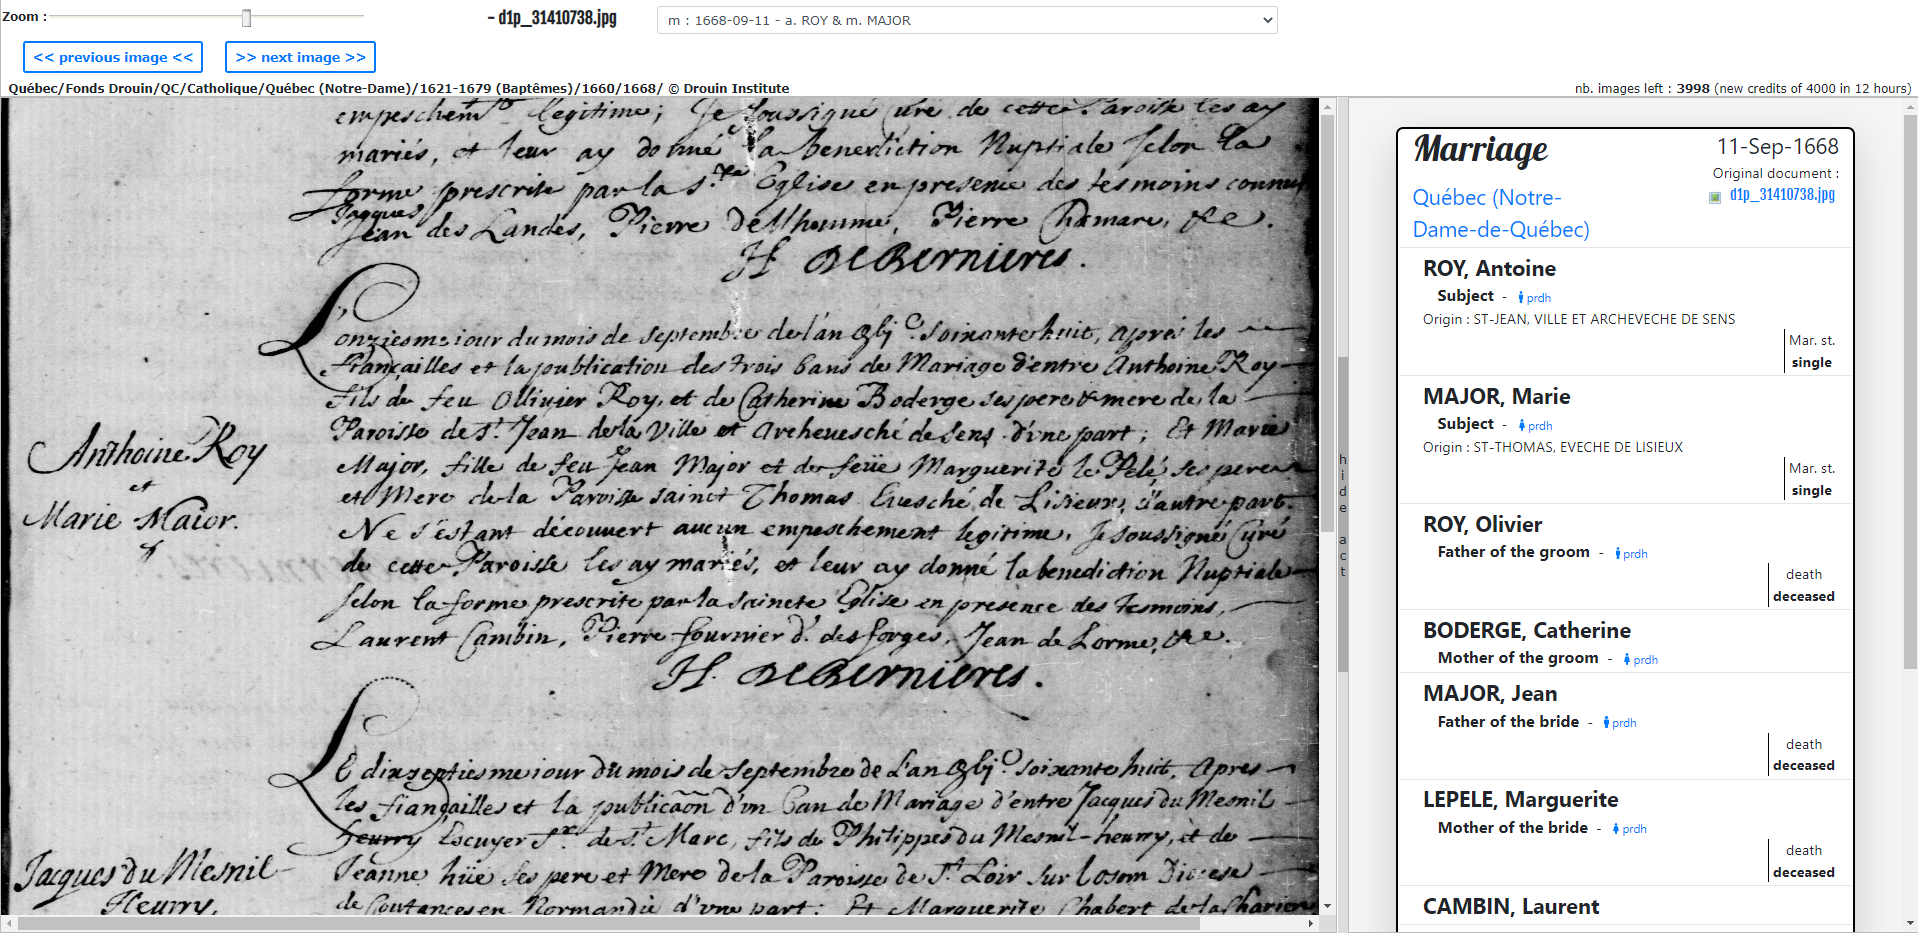 Zoom :
– d1p_31410738.jpg
m : 1668-09-11 - a. ROY & m. MAJOR
<< previous image <<
>> next image >>
Québec/Fonds Drouin/QC/Catholique/Québec (Notre-Dame)/1621-1679 (Baptêmes)/1660/1668/ © Drouin Institute
nb. images left : 3998 (new credits of 4000 in 12 hours)
empeschemt legitime; Je soussigné Curé de cette Paroisse les ay
mariés, et leur ay donné la benediction Nuptiale selon la
forme prescrite par la ste Eglise en presence des tesmoins connus
Jacques
Jean des Landes, Pierre de Nhomme, Pierre Chamare, &c.
H. de Bernieres.
L'onziesme iour du mois de septembre de l'an gbjc. soixante huit, après les
fiançailles et la publication des trois bans de Mariage d'entre Anthoine Roy
fils de feu Ollivier Roy, et de Catherine Boderge ses pere & mere de la
Paroisse de st. Jean de la Ville et Archevesché de Sens d'une part; Et Marie
Major, fille de feu Jean Major et de feüe Marguerite le Pelé ses pere
et Mere de la Paroisse sainct Thomas Evesché de Lisieux, d'autre part.
Ne s'estant découvert aucun empeschement legitime, Je soussigné Curé
de cette Paroisse les ay mariés, et leur ay donné la benediction Nuptiale
selon la forme prescrite par la saincte Eglise en presence des tesmoins,
Laurent Cambin, Pierre fournier d. des forges, Jean de Lorme, &c.
H. de Bernieres.
Anthoine Roy
et
Marie Maior.
Le dixseptiesme iour du mois de septembre de l'an gbjc. soixante huit, Apres
les fiançailles et la publicaõn d'un ban de Mariage d'entre Jacques du Mesnil
heurry Escuyer sr. de st. Marc, fils de Philippes du Mesnil-heurry, et de
Jeanne hüe ses pere et Mere de la Paroisse de st. Loir sur Diocese
de Coutances en Normandie d'une part; Et Marguerite Chabert de la
Jacques du Mesnil
Heurry,
hide act
Marriage
11-Sep-1668
Original document :
d1p_31410738.jpg
Québec (Notre-
Dame-de-Québec)
ROY, Antoine
Subject - prdh
Origin : ST-JEAN, VILLE ET ARCHEVECHE DE SENS
Mar. st.
single
MAJOR, Marie
Subject - prdh
Origin : ST-THOMAS, EVECHE DE LISIEUX
Mar. st.
single
ROY, Olivier
Father of the groom - prdh
death
deceased
BODERGE, Catherine
Mother of the groom - prdh
MAJOR, Jean
Father of the bride - prdh
death
deceased
LEPELE, Marguerite
Mother of the bride - prdh
death
deceased
CAMBIN, Laurent